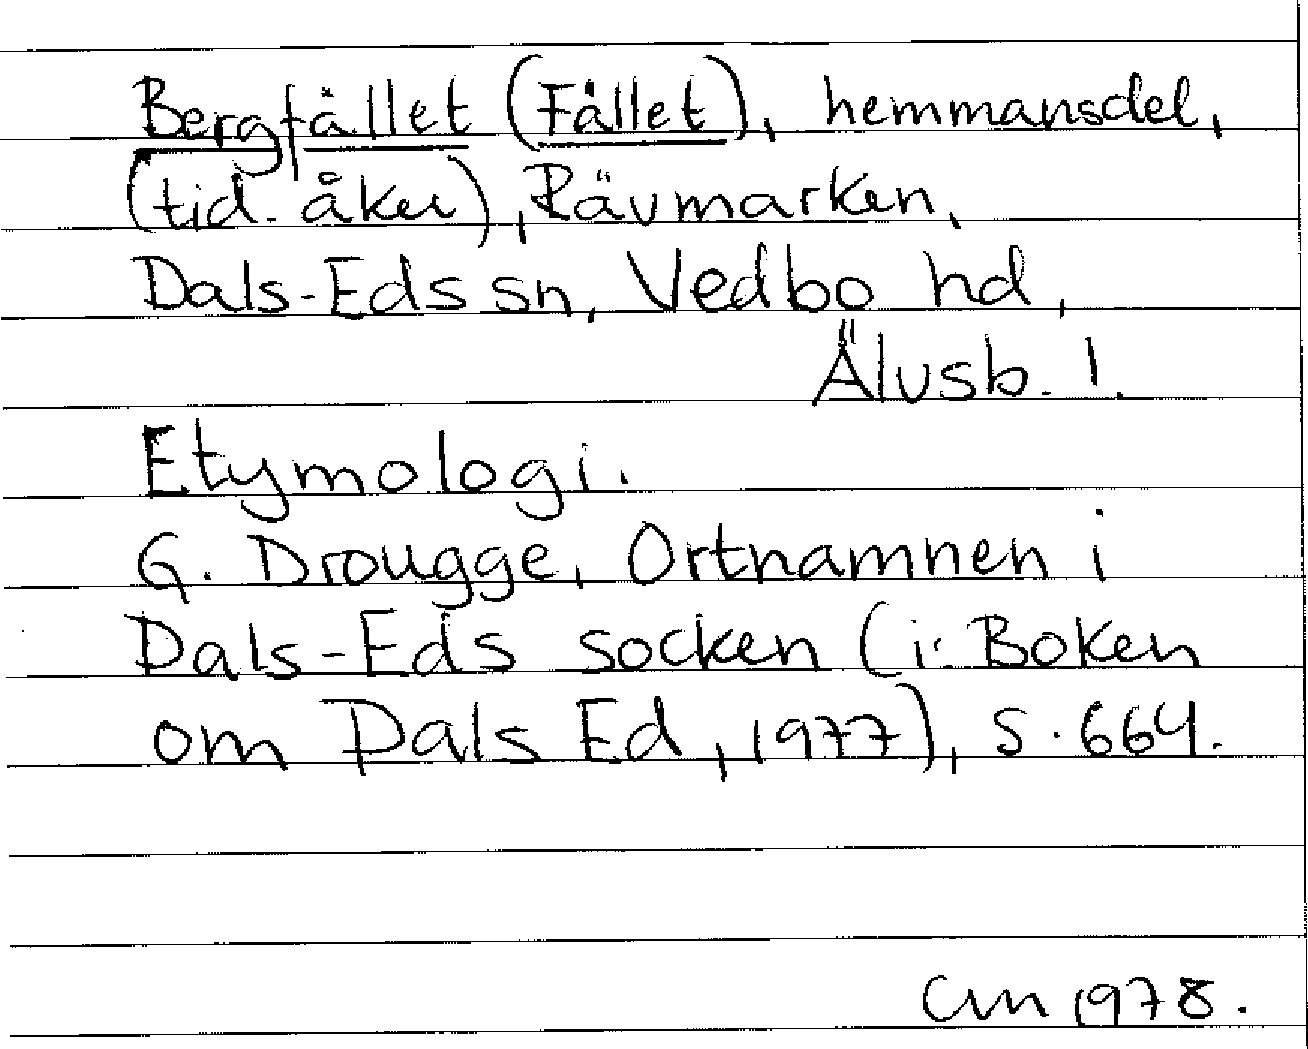 Bergfället (Fället), hemmansdel,
(tid. åker), Rävmarken,
Dals-Eds sn, Vedbo hd,
Älvsb. l.
Etymologi.
G. Drougge, Ortnamnen i
Dals-Eds socken (i: Boken
om Dals Ed, 1977), s. 664.
CM 1978.